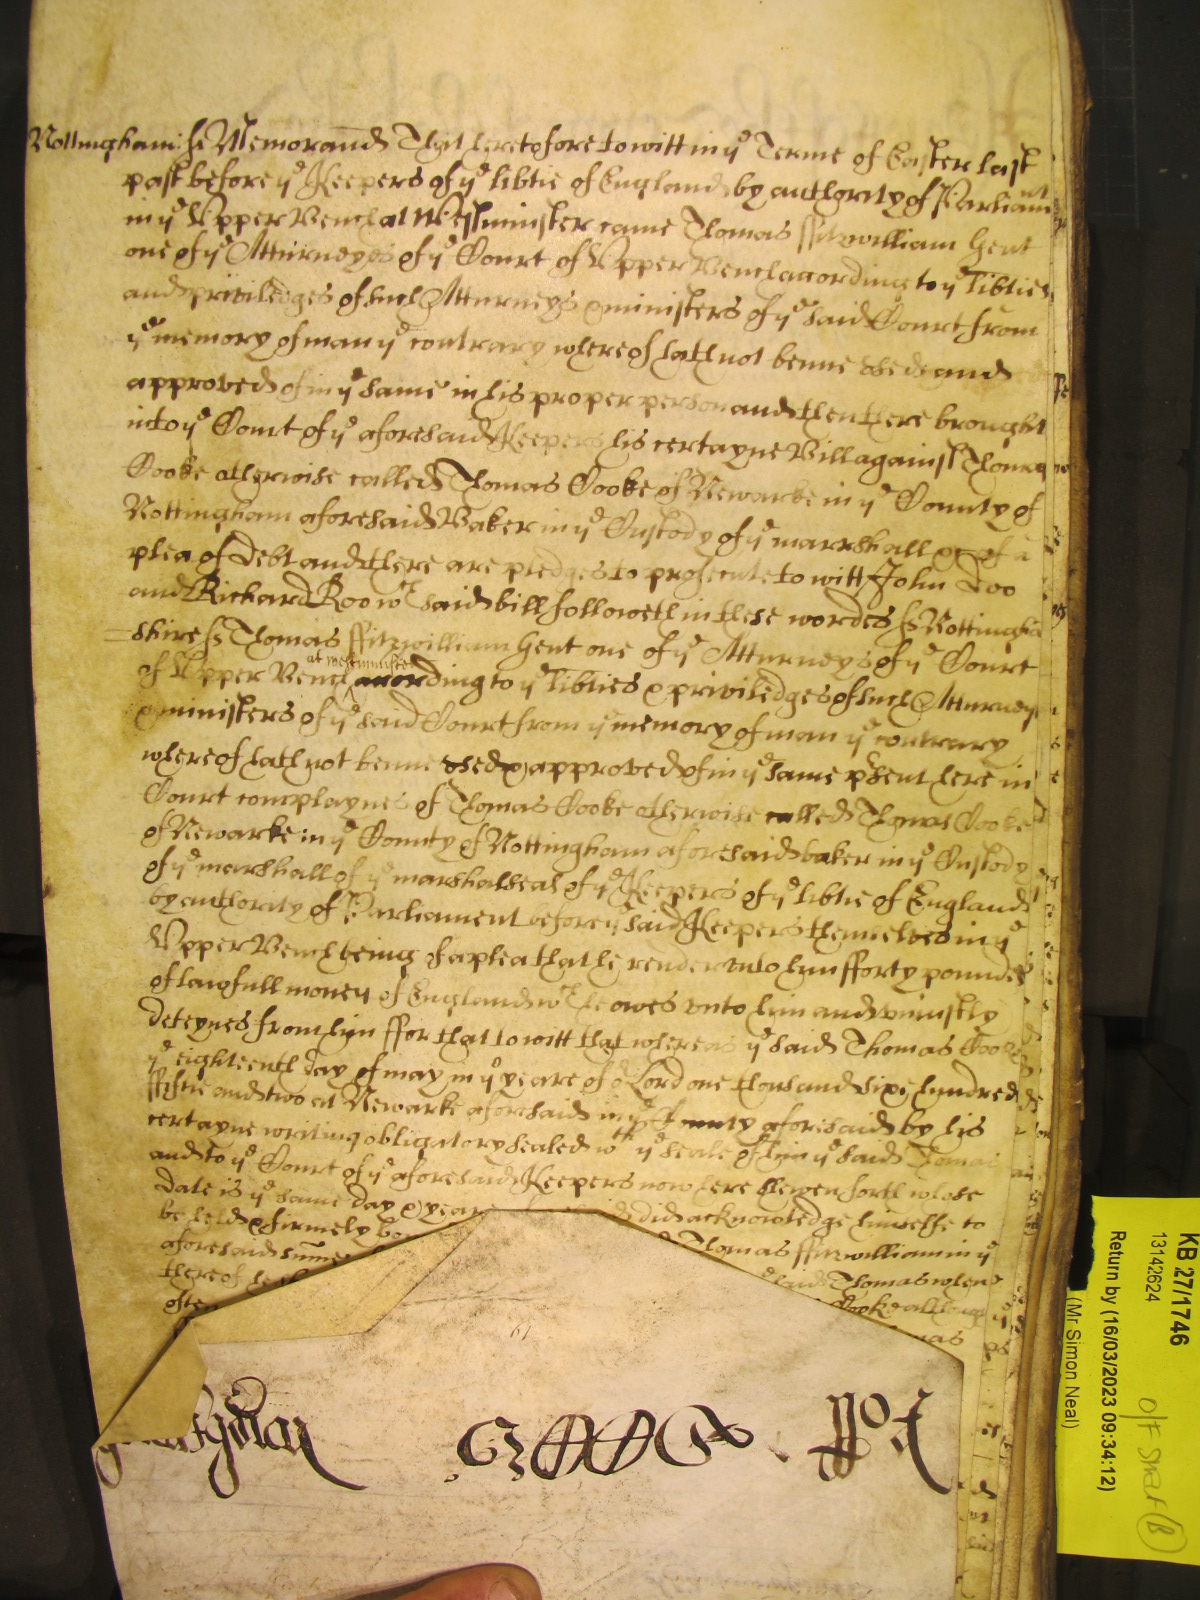 Nottingham: ss Memorand That heretofore to witt in ye Terme of Easter last
past before ye Keepers of ye libtie of England by authority of Parliamt
in ye Upper Bench at Westminster came Thomas ffitzwilliam Gent
one of ye Atturneyes of ye Court of Upper Bench according to ye libties
and priviledges of such Atturneys & ministers of ye said Court from
ye memory of man ye contrary whereof hath not beene used and
approved of in ye same in his proper person and then there brought
into ye Court of ye aforesaid Keepers his certayne Bill against Thomas
Cooke otherwise called Thomas Cooke of Newarke in ye County of
Nottingham aforesaid Baker in ye Custody of ye marshall &c of a
plea of Debt and there are pledges to prosecute to witt John Doo
and Richard Roo wch said bill followeth in these wordes ss Nottingha
shire ss Thomas ffitzwilliam Gent one of ye Atturneys of ye Court
of Upper Bench at westminster according to ye libties & priviledges of such Atturneys
& ministers of ye said Court from ye memory of man ye contrary
whereof hath not beene used & approved of in ye same psent here in
Court complaynes of Thomas Cooke otherwise called Thomas Cooke
of Newarke in ye County of Nottingham aforesaid baker in ye Custody
of ye marshall of ye marshalseas of ye Keepers of ye libtie of England
by authority of Parliament before ye said Keepers themselves in ye
Upper Bench being of a plea that he render unto him fforty pounds
of lawfull money of England wch he owes unto him and uniustly
deteynes from him ffor that to witt that whereas ye said Thomas Cooke
ye eighteenth day of may in ye yeare of or Lord one thousand sixe hundred
fiftie and two at Newarke aforesaid in ye County aforesaid by his
certayne writing obligatory sealed wth ye seale of him ye said Thomas
and to ye Court of ye aforesaid Keepers now here shewen forth whose
date is ye same day & yeare did acknowledge himselfe to
be held & firmely bo Thomas ffitzwilliam in ye
aforesaid summe said Thomas when
thereof he Cooke although
often
KB 27/1746
13142624
Return by (16/03/2023 09:34:12)
(Mr Simon Neal)
O/F Smart (B)